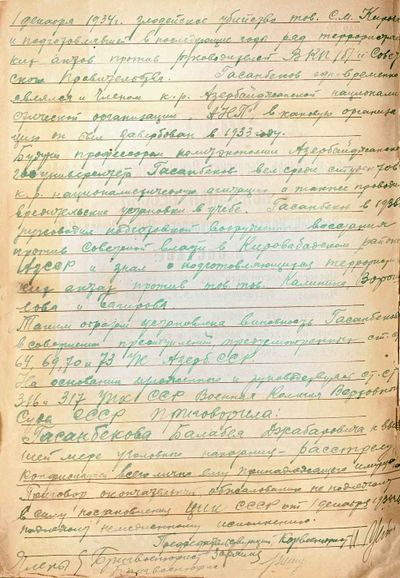 1 декабря 1934г. злодейское убийство тов. С.М. Кирова
и подготовлявшей в последующие года ряд террористичес
ких актов против руководителей ВКП/б/ и Совет
ского Правительства. Гасанбеков одновременно
являлся и членом к.р. Азербайджанской национали
стической организации, в каковую организа
цию он был завербован в 1933 году.
Будучи профессором политэкономии Азербайджанского
госуниверситета Гасанбеков вел среди студентов
к.р. националистическую агитацию а также проводил
вредительские установки в учебе. Гасанбеков в 1936
руководил подготовкой вооруженного восстания
против Советской власти в Кировабадском районе
АзССР и знал о подготовляющихся террористичес
ких актах против тов. тов. Калинина Вороши
лова и Багирова
Таким образом установлена виновность Гасанбекова
в совершении преступлений предусмотренных ст.ст.
64, 69, 70 и 73 УК Азерб ССР.
На основании изложенного и руководствуясь ст.ст.
316 и 317 УПК ССР Военная Коллегия Верховного
Суда СССР Приговорила:
Гасанбекова Балабея Джабаровича к выс
шей мере уголовного наказания - расстрелу
конфискацией всего лично ему принадлежащего имущества
Приговор окончательный обжалованию не подлежит
в силу постановления ЦИК СССР от 1 декабря 1934г.
подлежит немедленному исполнению.
Председательствующий Корвоенюрист
Члены Бригвоенюрист Зарянов
Бригвоенюрист